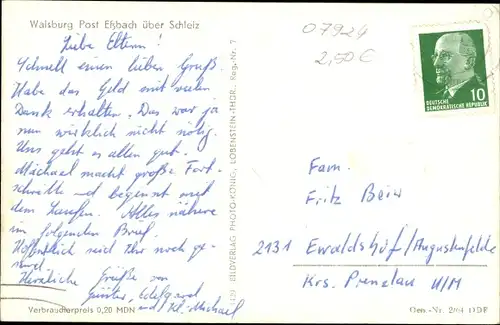 Walsburg Post Eßbach über Schleiz
07924
2,50 €
Liebe Eltern!
Schnell einen lieben Gruß.
Habe das Geld mit vielen
Dank erhalten. Das war ja
nun wirklich nicht nötig.
Uns geht es allen gut.
Michael macht große Fort-
schritte und beginnt mit
dem Laufen. Alles nähere
im folgenden Brief.
Hoffentlich seid Ihr noch ge-
sund.
Herzliche Grüße von
Günter, Edelgard
und Kl. Michael
Verbraucherpreis 0,20 MDN
BILDVERLAG PHOTO-KÖNIG, LOBENSTEIN-THÜR. Reg.-Nr. 7
10
DEUTSCHE
DEMOKRATISCHE REPUBLIK
Fam.
Fritz Beier
2131 Ewaldshof/Augustenfelde
Krs. Prenzlau U/M
Gen.-Nr. 2/64 DDR